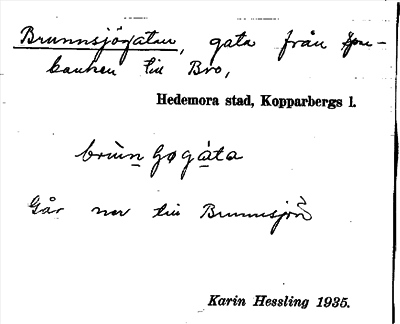 Brunnsjögatan, gata från
banken till Bro,
Hedemora stad, Kopparbergs l.
Går ner till Brunnsjön
Karin Hessling 1935.